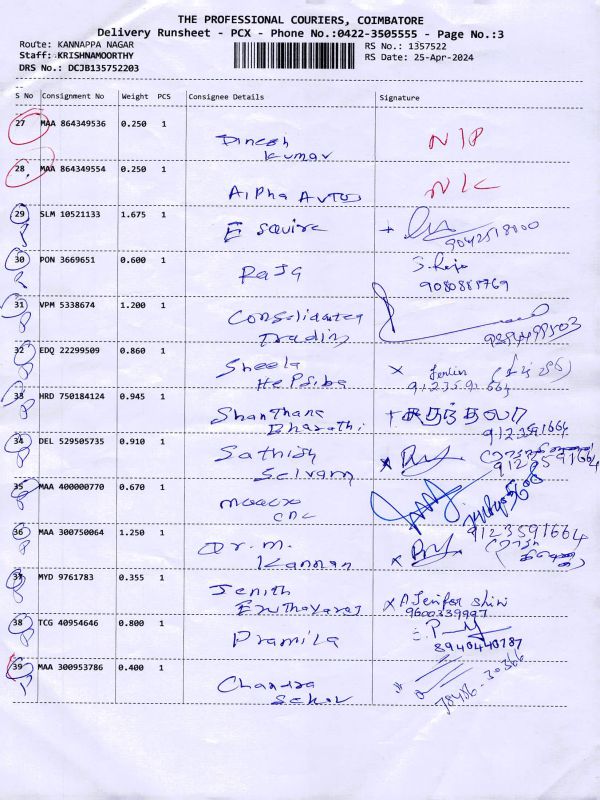 THE PROFESSIONAL COURIERS, COIMBATORE
Delivery Runsheet - PCX - Phone No.:0422-3505555 - Page No.:3
Route: KANNAPPA NAGAR RS No.: 1357522
Staff: KRISHNAMOORTHY RS Date: 25-Apr-2024
DRS No.: DCJB135752203
S No Consignment No Weight PCS Consignee Details Signature
27 MAA 864349536 0.250 1
Dinesh Kumar N/P
28 MAA 864349554 0.250 1
Alpha Autos N/C
29 SLM 10521133 1.675 1
E Squire 9042518000
30 PON 3669651 0.600 1
Raja S. Raja
9080888769
31 VPM 5338674 1.200 1
Consolidated
Trading
32 EDQ 22299509 0.860 1
Sheela Jenlin
Hepsiba 9123591664
33 HRD 750184124 0.945 1
Shanthana
Bharathi 9123591664
34 DEL 529505735 0.910 1
Sathish
Selvam 9123591664
35 MAA 400000770 0.670 1
CNC
36 MAA 300750064 1.250 1 9123591664
Dr. M.
Kannan
37 MYD 9761783 0.355 1
Jenith A Jenifer Shini
9600339997
38 TCG 40954646 0.800 1
Pramila
8940440787
39 MAA 300953786 0.400 1
Chandra
Sekar 78486-30366